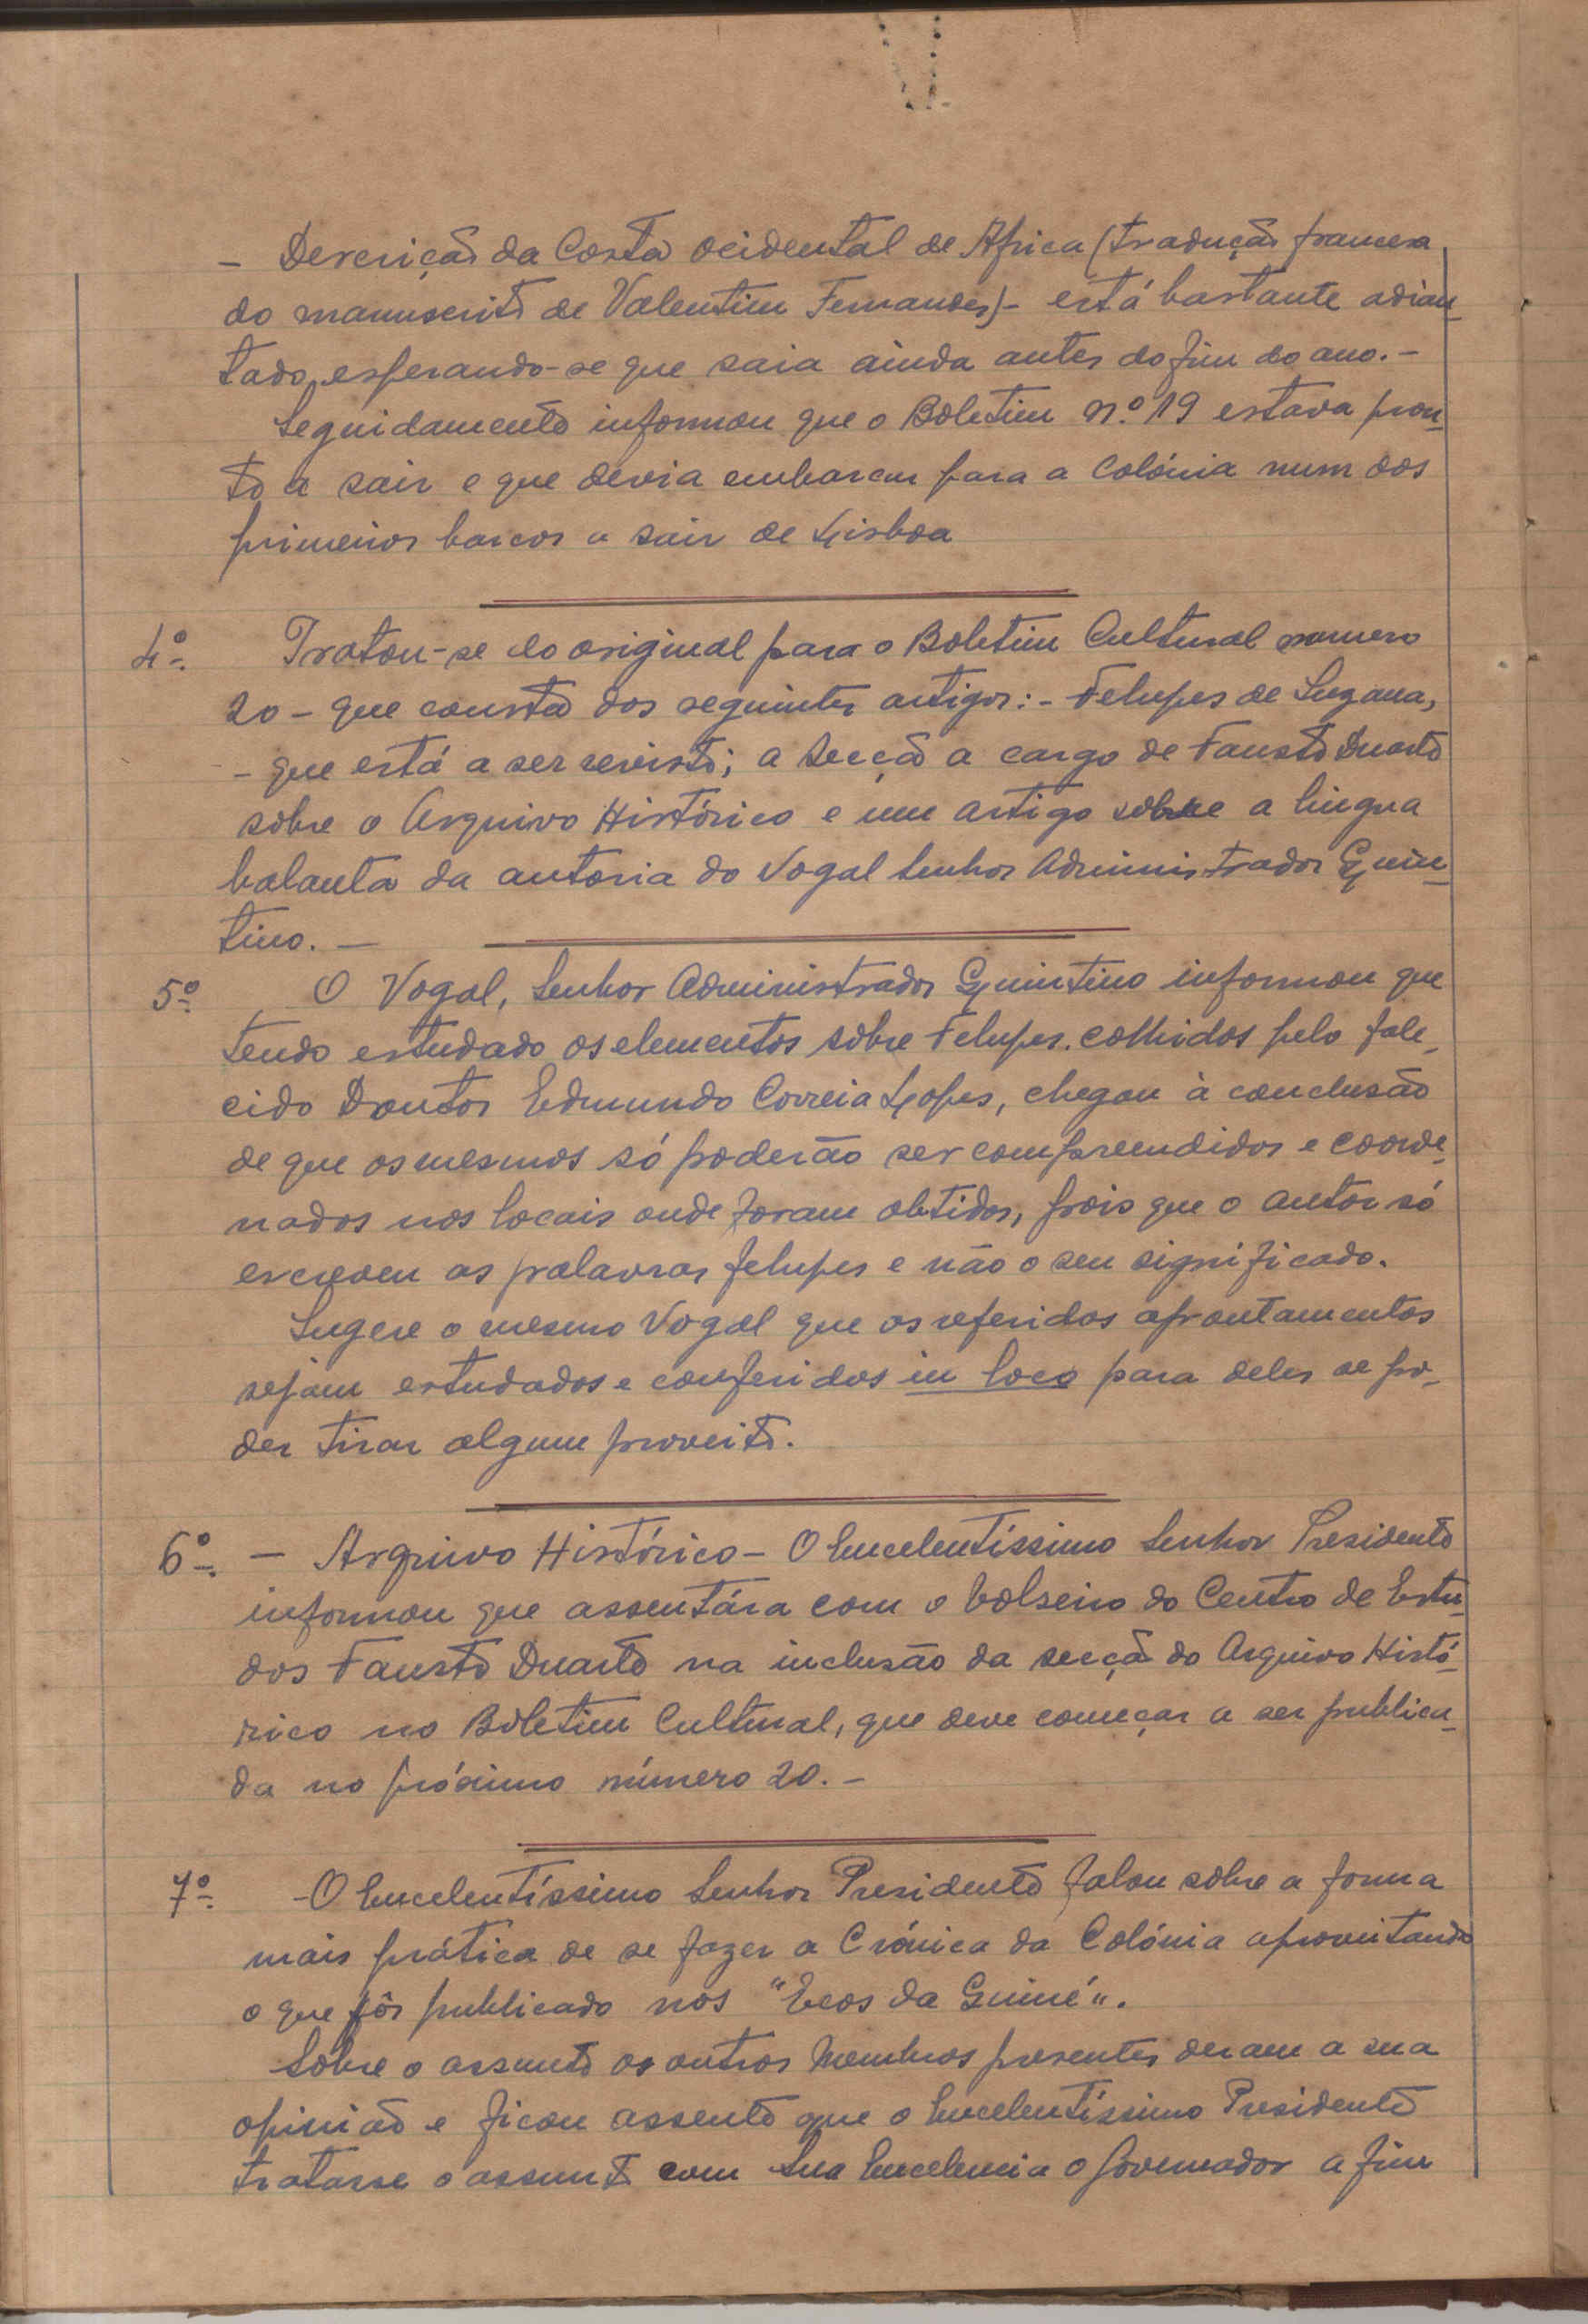 - Descrição da Costa ocidental de Africa (tradução francesa
do manuscrito de Valentim Fernandes) - está bastante adian-
tado, esperando-se que saia ainda antes do fim do ano. -
Seguidamente informou que o Boletim n.º 19 estava pron-
to a sair e que devia embarcar para a Colónia num dos
primeiros barcos a sair de Lisboa
4º. Tratou-se do original para o Boletim Cultural numero
20 - que consta dos seguintes artigos: - Felupes de Suzana,
- que está a ser revisto; a Secção a cargo de Fausto Duarte
sobre o Arquivo Histórico e um artigo sobre a lingua
balanta da autoria do Vogal Senhor Administrador Quin-
tino. -
5º. O Vogal, Senhor Administrador Quintino informou que
tendo estudado os elementos sobre Felupes colhidos pelo fale-
cido Doutor Edmundo Correia Lopes, chegou à conclusão
de que os mesmos só poderão ser compreendidos e coorde-
nados nos locais onde foram obtidos, pois que o autor só
escreveu as palavras felupes e não o seu significado.
Sugere o mesmo Vogal que os referidos apontamentos
sejam estudados e conferidos in loco para deles se po-
der tirar algum proveito.
6º. - Arquivo Histórico - O Excelentíssimo Senhor Presidente
informou que assentára com o bolseiro do Centro de Estu-
dos Fausto Duarte na inclusão da secção do Arquivo Histó-
rico no Boletim Cultural, que deve começar a ser publica-
da no próximo número 20. -
7º. - O Excelentíssimo Senhor Presidente falou sobre a forma
mais prática de se fazer a Crónica da Colónia aproveitando
o que fôr publicado nos "Ecos da Guiné".
Sobre o assunto os outros Membros presentes deram a sua
opinião e ficou assente que o Excelentíssimo Presidente
tratasse o assunto com Sua Excelencia o Governador a fim